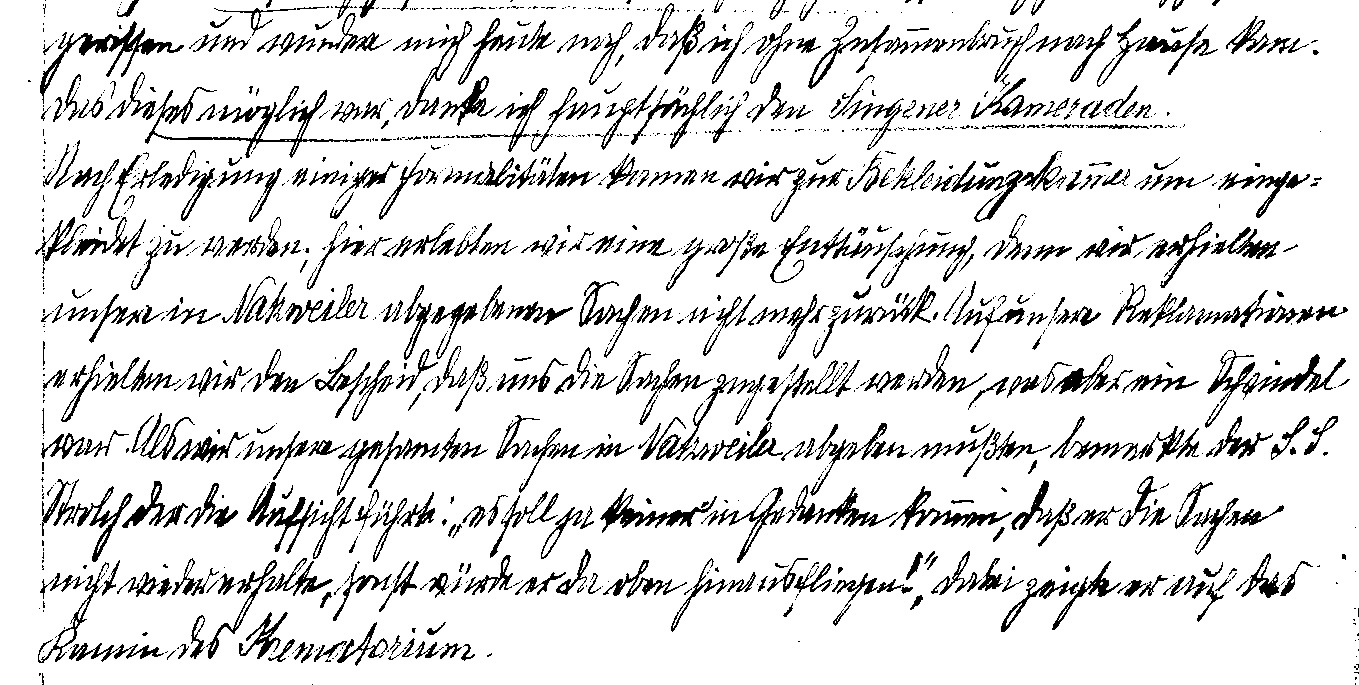 gerissen und wunder mich heute noch, daß ich ohne Zusam̄enbruch nach Hause kam.
Das dieses möglich war, danke ich hauptsächlich den Singener Kameraden.
Nach Erledigung einiger Formalitäten kamen wir zur Bekleidungskam̄er um einge=
kleidet zu werden, hier erlebten wir eine große Enttäuschung, denn wir erhielten
unsere in Natzweiler abgegebenen Sachen nicht mehr zurück. Auf unsere Reklamationen
erhielten wir den Bescheid, daß uns die Sachen zugestellt werden, was aber ein Schwindel
war. Als wir unsere gesamten Sachen in Natzweiler abgeben mußten, bemerkte der S.S.
Strolch der die Aufsicht führte: „es soll ja keiner in Gedanken kom̄en, daß er die Sachen
nicht wieder erhalte, sonst würde er da oben hinausfliegen!", dabei zeigte er auf das
Kamin des Krematorium.